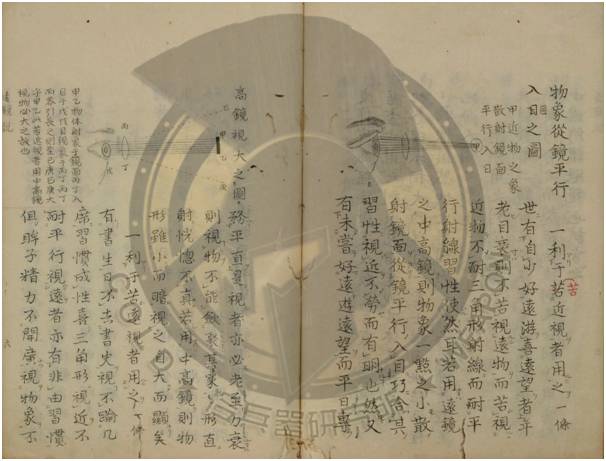 物象從鏡平行
入目之圖
甲近物之象
散射鏡面
平行入目
一利于若近視者用之一條
苦
世有自少好遠游喜遠望者年
老目衰則不苦視遠物而苦視
近物不耐三角形射線而耐平
行射線習性使然耳若用遠鏡
之中高鏡則物象一點之小散
射鏡面從鏡平行入目巧合其
習性視近不勞而有明也然又
有未嘗好遠遊遠望而平日專
高鏡視大之圖
務平直視者亦必老至力衰
則視物不能斂聚其象以形直
射恍惚不真若用中高鏡則物
形雖小而暗視之自大而顯矣
一利于苦遠視者用之一條
有書生目不去書史視不踰几
席習慣成性喜三角形視近不
耐平行視遠者亦有非由習慣
但眸子精力不開廣視物象不
甲乙物体射象于鏡面丙丁入
目于戊戊目視象于丙丁丙丁
兩界引長之則至己庚己庚大
於甲乙以若近視者用中高鏡
視物必大之故也
遠鏡說
六